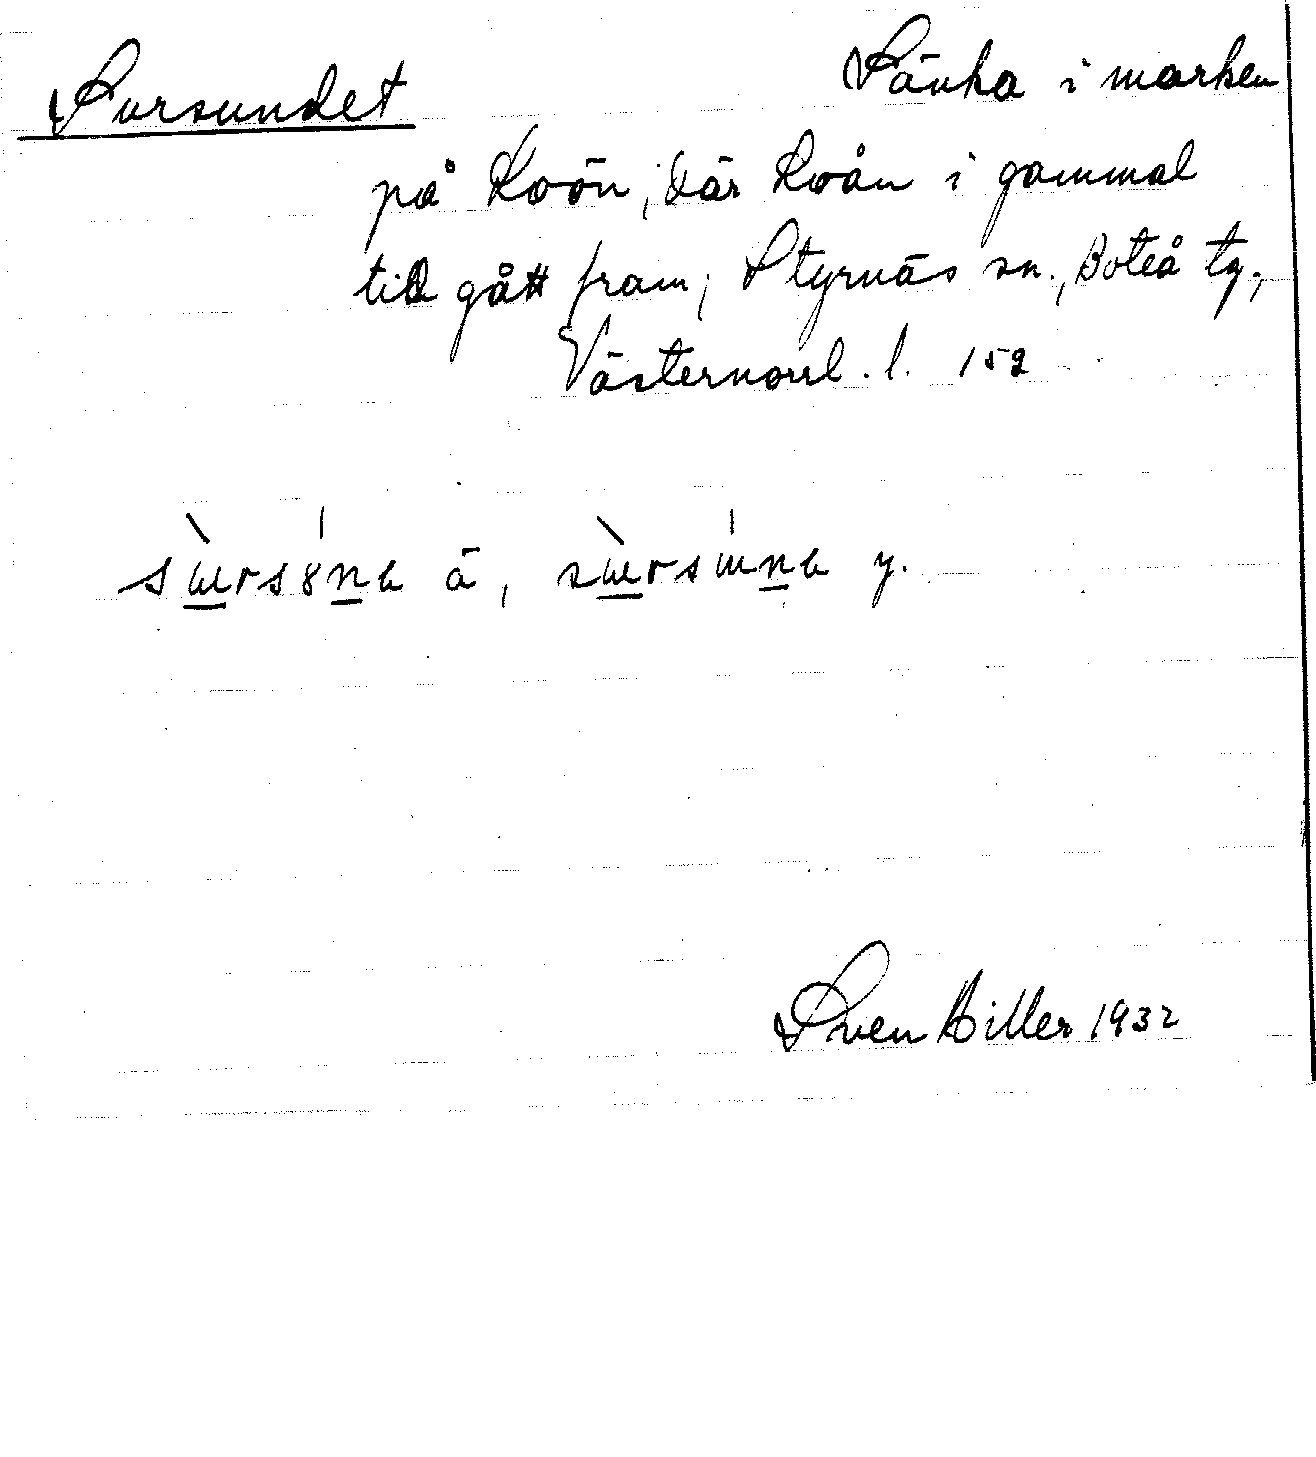 Sursundet Sänka i marken
på Koön, där Koån i gammal
tid gått fram; Styrnäs sn., Boteå tg.,
Västernorrl. l. 152
Sven Hiller 1932